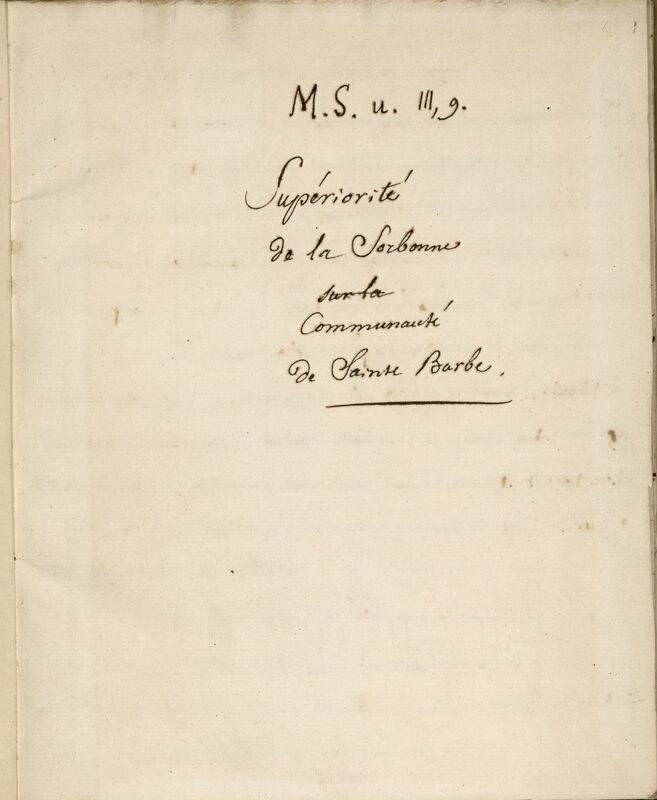 M. S. u. III, 9.
Supériorité
de la Sorbonne
sur la
Communauté
de Sainte Barbe.